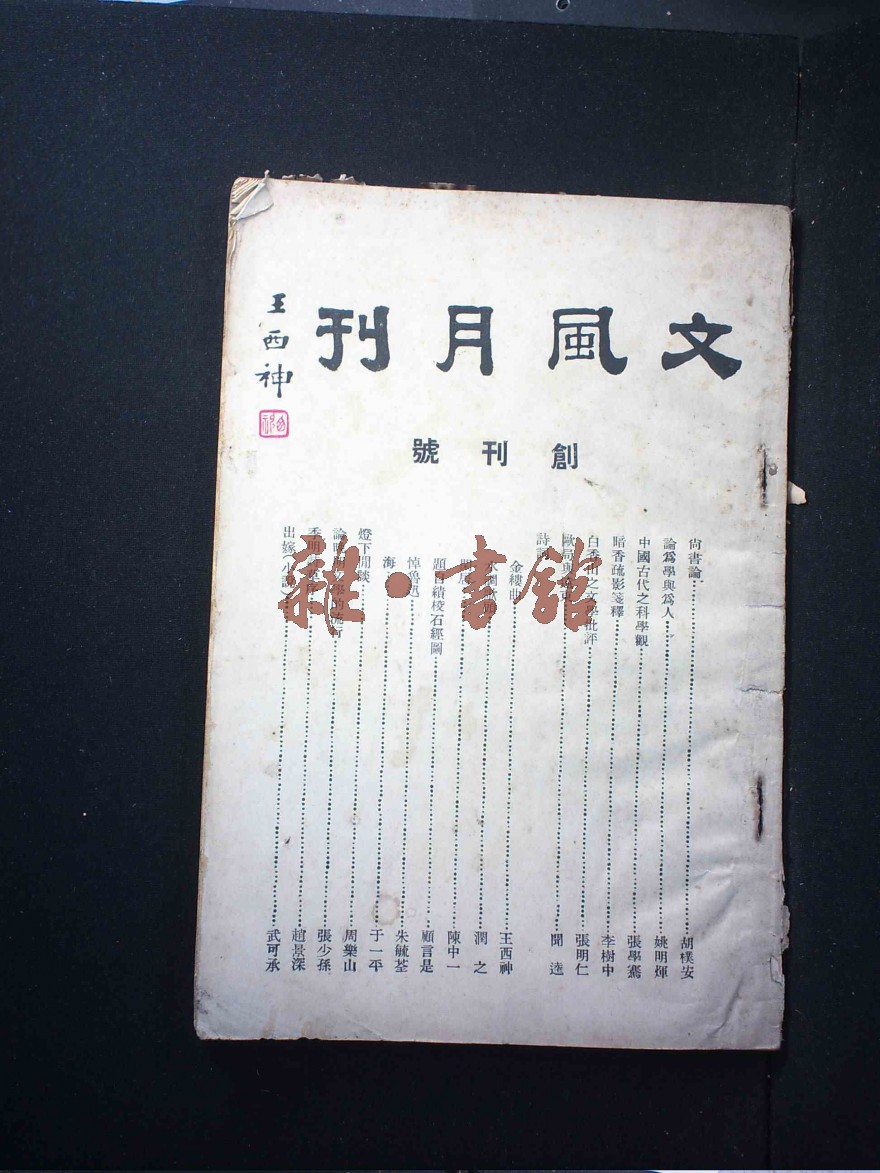 文風月刊
王西神
創刊號
尙書論 胡樸安
論爲學與爲人 姚明煇
中國古代之科學觀 張學騫
暗香疏影箋釋 李樹中
白香山之文學批評 張明仁
歐局與遠東 聞逵
詩詞
金縷曲 王西神
潤之
陳中一
題自績棱石經圖 顧言是
悼魯迅 朱毓荃
海 于一平
燈下閒談 周樂山
論晚明文學的流行 張少孫
季明 趙景深
出嫁（小說） 武可承
雜·書館